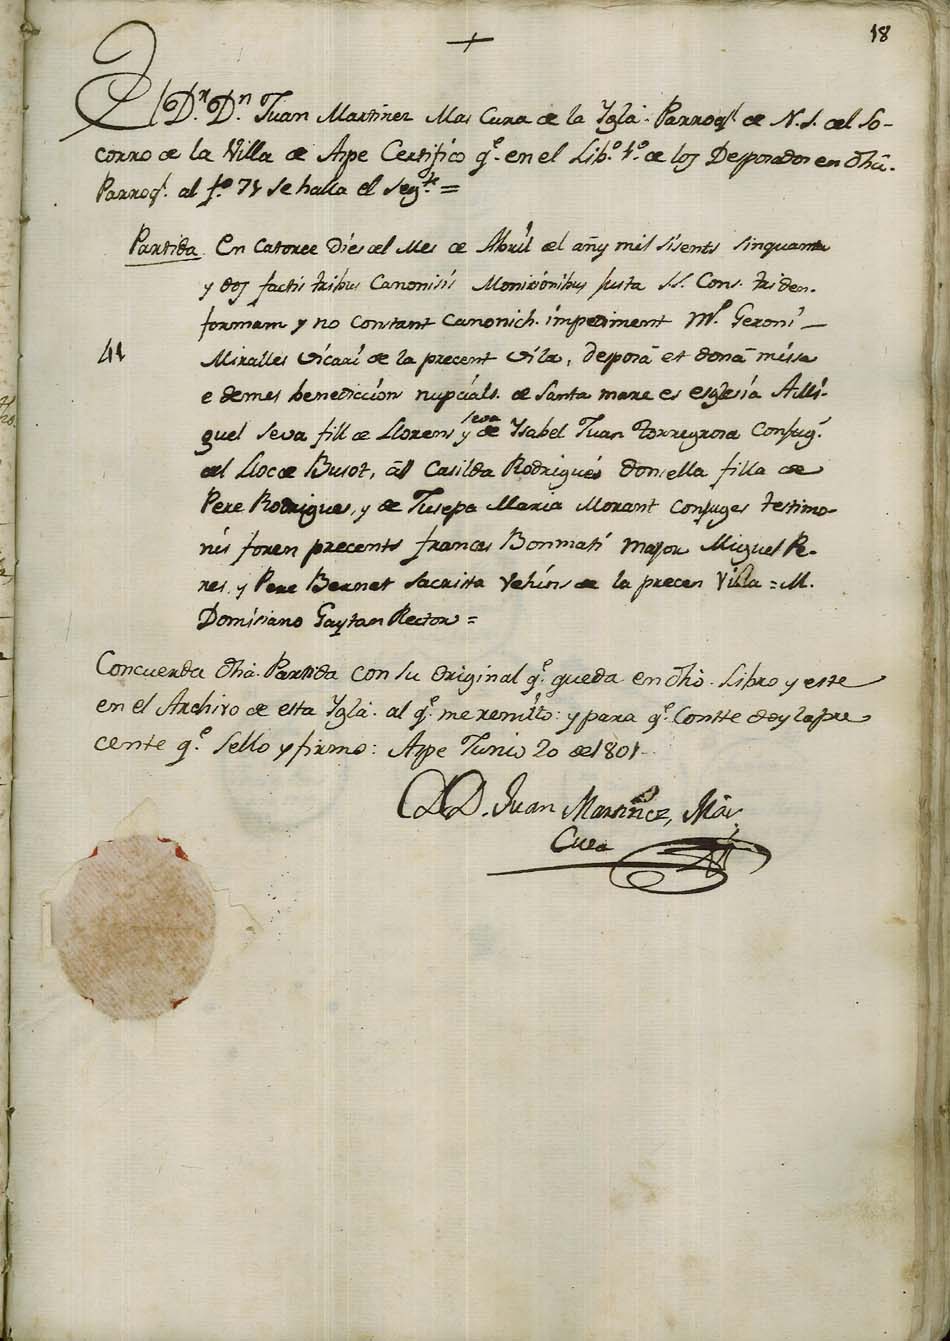 18
El D.r D.n Juan Martinez Mas Cura de la Ygla. Parroq.l de N. S. del So-
corro de la Villa de Aspe Certifico q.e en el Lib.o 1.o de los Desposados en dha.
Parroq.l al f.o 71 se halla el seg.te =
Partida. En Catorce dies del Mes de Abril del añy mil sisents sinquanta
y dos factis tribus Canonisis Monisionibus justa SS. Cons. triden.
formam y no constant canonich. impediment M.n Geroni
Miralles vicari de la precent vila, desposá et doná missa
e demes benediccion nupcials. de Santa mare es esglesia A Mi-
guel Seva fill de Llorens seva y de Ysabel Juan torregrosa Conjug.
del Lloc de Busot, ab Casilda Rodrigues donsella filla de
Pere Rodrigues, y de Jusepa Maria Morant Conjuges testimo-
nis foren precents frances Bonmati major Miguel Pe-
res, y Pere Bernet Sacrista Vehins de la precen Villa = M.
Domisiano Gaytan Rector =
Concuerda dha. Partida con su original q.e queda en dho. Libro y este
en el Archivo de esta Ygla. al q.e me remito: y para q.e Conste doy la pre
cente q.e sello y firmo: Aspe Junio 20 de 1801
D. D. Juan Martinez, Mas
Cura